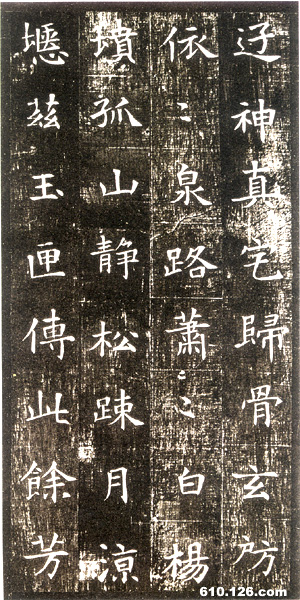 迁神真宅歸骨玄房
依〻泉路蕭〻白楊
墳孤山静松踈月涼
兹玉匣傳此餘芳
610.126.com